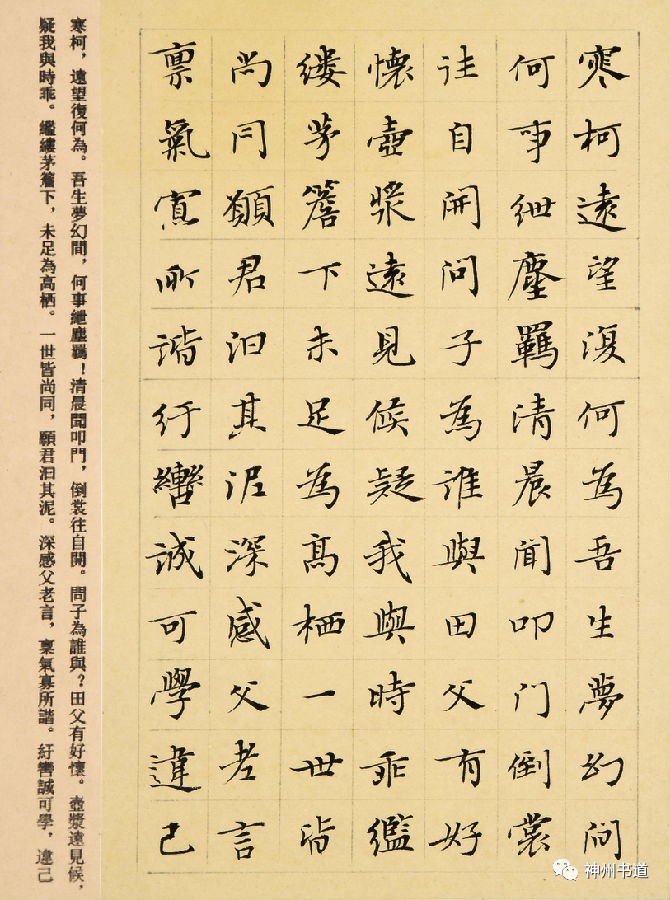 寒柯遠望復何為吾生夢幻間
何事紲塵羈清晨聞叩門倒裳
往自開問子為誰與田父有好
懷壺漿遠見候疑我與時乖繿
縷茅簷下未足為高栖一世皆
尚同願君汩其泥深感父老言
禀氣寡所諧紆轡誠可學違己
寒柯，遠望復何為。吾生夢幻間，何事紲塵羈！清晨聞叩門，倒裳往自開。問子為誰與？田父有好懷。壺漿遠見候，
疑我與時乖。繿縷茅簷下，未足為高栖。一世皆尚同，願君汩其泥。深感父老言，稟氣寡所諧。紆轡誠可學，違己
神州书道